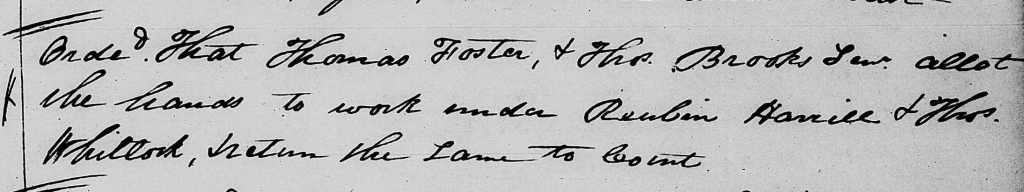 Orde^d. That Thomas Foster, & Thos. Brooks Senr. allot
the hands to work under Reubin Harrill & Thos.
Whitlock, & return the Same to Court.